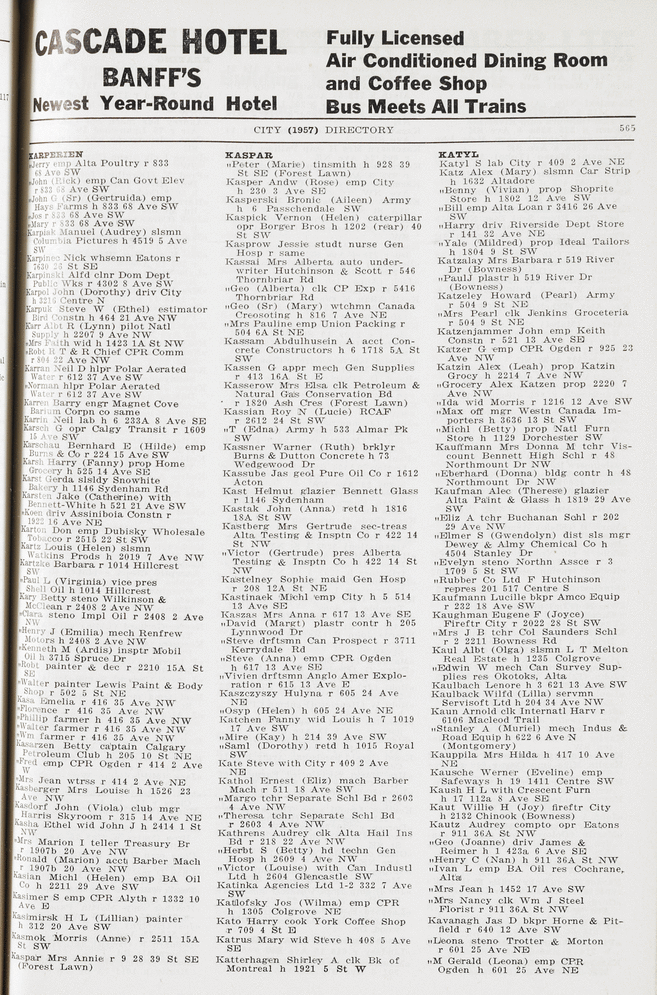 CASCADE HOTEL
BANFF'S
Newest Year-Round Hotel
Fully Licensed
Air Conditioned Dining Room
and Coffee Shop
Bus Meets All Trains
CITY (1957) DIRECTORY 565
KARPERIEN
„Jerry emp Alta Poultry r 833
68 Ave SW
„John (Eick) emp Can Govt Elev
r 833 68 Ave SW
„John G (Sr) (Gertruida) emp
Hays Farms h 833 68 Ave SW
„Jos r 833 68 Ave SW
„Mary r 833 68 Ave SW
Karpiak Manuel (Audrey) slsmn
Columbia Pictures h 4519 5 Ave
SW
Karpineo Nick whsemn Eatons r
7630 24 St SE
Karpinski Alfd clnr Dom Dept
Public Wks r 4302 8 Ave SW
Karpol John (Dorothy) driv City
h 3216 Centre N
Karpuk Steve W (Ethel) estimator
Bird Constn h 464 21 Ave NW
Karr Albt R (Lynn) pilot Natl
Supply h 2207 9 Ave NW
„Mrs Faith wid h 1423 1A St NW
„Robt R T & R Chief CPR Comm
r 804 22 Ave NW
Karran Neil D hlpr Polar Aerated
Water r 612 37 Ave SW
„Norman hlpr Polar Aerated
Water r 612 37 Ave SW
Karren Barry engr Magnet Cove
Barium Corpn co same
Karrin Neil lab h 6 233A 8 Ave SE
Karsch G opr Calgy Transit r 1609
15 Ave SW
Karschau Bernhard E (Hilde) emp
Burns & Co r 224 15 Ave SW
Karsh Harry (Fanny) prop Home
Grocery h 525 14 Ave SE
Karst Gerda slsldy Snowhite
Bakery h 1146 Sydenham Rd
Karsten Jake (Catherine) with
Bennett-White h 521 21 Ave SW
„Koen driv Assiniboia Constn r
1922 16 Ave NE
Karton Don emp Dubisky Wholesale
Tobacco r 2515 22 St SW
Kartz Louis (Helen) slsmn
Watkins Prods h 2019 7 Ave NW
Kartzke Barbara r 1014 Hillcrest
SW
„Paul L (Virginia) vice pres
Shell Oil h 1014 Hillcrest
Kary Betty steno Wilkinson &
McClean r 2408 2 Ave NW
„Clara steno Impl Oil r 2408 2 Ave
NW
„Henry J (Emilia) mech Renfrew
Motors h 2408 2 Ave NW
„Kenneth M (Ardis) insptr Mobil
Oil h 3715 Spruce Dr
„Robt painter & dec r 2210 15A St
SE
„Walter painter Lewis Paint & Body
Shop r 502 5 St NE
Kasa Emelia r 416 35 Ave NW
„Florence r 416 35 Ave NW
„Phillip farmer h 416 35 Ave NW
„Walter farmer r 416 35 Ave NW
„Wm farmer r 416 35 Ave NW
Kasarzen Betty captain Calgary
Petroleum Club h 205 10 St NE
„Fred emp CPR Ogden r 414 2 Ave
W
„Mrs Jean wtrss r 414 2 Ave NE
Kasberger Mrs Louise h 1526 23
Ave NW
Kasdorf John (Viola) club mgr
Harris Skyroom r 315 14 Ave NE
Kasha Ethel wid John J h 2414 1 St
NW
„Mrs Marion I teller Treasury Br
r 1907b 20 Ave NW
„Ronald (Marion) acct Barber Mach
r 1907b 20 Ave NW
Kasian Michl (Helen) emp BA Oil
Co h 2211 29 Ave SW
Kasimer S emp CPR Alyth r 1332 10
Ave E
Kasimirsk H L (Lillian) painter
h 312 20 Ave SW
Kasmok Morris (Anne) r 2511 15A
St SW
Kaspar Mrs Annie r 9 28 39 St SE
(Forest Lawn)
KASPAR
„Peter (Marie) tinsmith h 928 39
St SE (Forest Lawn)
Kasper Andw (Rose) emp City
h 230 3 Ave SE
Kasperski Bronic (Aileen) Army
h 6 Passchendale SW
Kaspick Vernon (Helen) caterpillar
opr Borger Bros h 1202 (rear) 40
St SW
Kasprow Jessie studt nurse Gen
Hosp r same
Kassai Mrs Alberta auto under-
writer Hutchinson & Scott r 546
Thornbriar Rd
„Geo (Alberta) clk CP Exp r 5416
Thornbriar Rd
„Geo (Sr) (Mary) wtchmn Canada
Creosoting h 816 7 Ave NE
„Mrs Pauline emp Union Packing r
504 6A St NE
Kassam Abdulhusein A acct Con-
crete Constructors h 6 1718 5A St
SW
Kassen G appr mech Gen Supplies
r 413 16A St E
Kasserow Mrs Elsa clk Petroleum &
Natural Gas Conservation Bd
r 1820 Ash Cres (Forest Lawn)
Kassian Roy N (Lucie) RCAF
r 2612 24 St SW
„T (Edna) Army h 533 Almar Pk
SW
Kassner Warner (Ruth) brklyr
Burns & Dutton Concrete h 73
Wedgewood Dr
Kassube Jas geol Pure Oil Co r 1612
Acton
Kast Helmut glazier Bennett Glass
r 1146 Sydenham
Kastak John (Anna) retd h 1816
18A St SW
Kastberg Mrs Gertrude sec-treas
Alta Testing & Insptn Co r 422 14
St NW
„Victor (Gertrude) pres Alberta
Testing & Insptn Co h 422 14 St
NW
Kastelney Sophie maid Gen Hosp
r 208 12A St NE
Kastinaek Michl emp City h 5 514
13 Ave SE
Kaszas Mrs Anna r 617 13 Ave SE
„David (Margt) plastr contr h 205
Lynnwood Dr
„Steve drftsmn Can Prospect r 3711
Kerrydale Rd
„Steve (Anna) emp CPR Ogden
h 617 13 Ave SE
„Vivien drftsmn Anglo Amer Explo-
ration r 615 13 Ave E
Kaszczyszy Hulyna r 605 24 Ave
NE
„Osyp (Helen) h 605 24 Ave NE
Katchen Fanny wid Louis h 7 1019
17 Ave SW
„Mire (Kay) h 214 39 Ave SW
„Saml (Dorothy) retd h 1015 Royal
SW
Kate Steve with City r 409 2 Ave
NE
Kathol Ernest (Eliz) mach Barber
Mach r 511 18 Ave SW
„Margo tchr Separate Schl Bd r 2603
4 Ave NW
„Theresa tchr Separate Schl Bd
r 2603 4 Ave NW
Kathrens Audrey clk Alta Hail Ins
Bd r 218 22 Ave NW
„Herbt S (Betty) hd techn Gen
Hosp h 2609 4 Ave NW
„Victor (Louise) with Can Industl
Ltd h 2604 Glencastle SW
Katinka Agencies Ltd 1-2 332 7 Ave
SW
Katlofsky Jos (Wilma) emp CPR
h 1305 Colgrove NE
Kato Harry cook York Coffee Shop
r 709 4 St E
Katrus Mary wid Steve h 408 5 Ave
SE
Katterhagen Shirley A clk Bk of
Montreal h 1921 5 St W
KATYL
Katyl S lab City r 409 2 Ave NE
Katz Alex (Mary) slsmn Car Strip
h 1632 Altadore
„Benny (Vivian) prop Shoprite
Store h 1802 12 Ave SW
„Bill emp Alta Loan r 3416 26 Ave
SW
„Harry driv Riverside Dept Store
r 141 32 Ave NE
„Yale (Mildred) prop Ideal Tailors
h 1804 9 St SW
Katzalay Mrs Barbara r 519 River
Dr (Bowness)
„PaulJ plastr h 519 River Dr
(Bowness)
Katzeley Howard (Pearl) Army
r 504 9 St NE
„Mrs Pearl clk Jenkins Groceteria
r 504 9 St NE
Katzenjammer John emp Keith
Constn r 521 13 Ave SE
Katzer G emp CPR Ogden r 925 23
Ave NW
Katzin Alex (Leah) prop Katzin
Grocy h 2214 7 Ave NW
„Grocery Alex Katzen prop 2220 7
Ave NW
„Ida wid Morris r 1216 12 Ave SW
„Max off mgr Westn Canada Im-
porters h 3636 13 St SW
„Michl (Betty) prop Natl Furn
Store h 1129 Dorchester SW
Kauffmann Mrs Donna M tchr Vis-
count Bennett High Schl r 48
Northmount Dr NW
„Eberhard (Donna) bldg contr h 48
Northmount Dr NW
Kaufman Alec (Therese) glazier
Alta Paint & Glass h 1819 29 Ave
SW
„Eliz A tchr Buchanan Schl r 202
29 Ave NW
„Elmer S (Gwendolyn) dist sls mgr
Dewey & Almy Chemical Co h
4504 Stanley Dr
„Evelyn steno Northn Assce r 3
1709 5 St SW
„Rubber Co Ltd F Hutchinson
repres 201 517 Centre S
Kaufmann Lucille bkpr Amco Equip
r 232 18 Ave SW
Kaughman Eugene F (Joyce)
Fireftr City r 2022 28 St SW
„Mrs J B tchr Col Saunders Schl
r 2 2211 Bowness Rd
Kaul Albt (Olga) slsmn L T Melton
Real Estate h 1235 Colgrove
„Edwin W mech Can Survey Sup-
plies res Okotoks, Alta
Kaulbach Lenore h 3 621 13 Ave SW
Kaulback Wilfd (Lilla) servmn
Servisoft Ltd h 204 34 Ave NW
Kaun Arnold clk Internatl Harv r
6106 Macleod Trail
„Stanley A (Muriel) mech Indus &
Road Equip h 622 6 Ave N
(Montgomery)
Kauppila Mrs Hilda h 417 10 Ave
NE
Kausche Werner (Eveline) emp
Safeways h 19 1411 Centre SW
Kaush H L with Crescent Furn
h 17 112a 8 Ave SE
Kaut Willie H (Joy) fireftr City
h 2132 Chinook (Bowness)
Kautz Audrey compto opr Eatons
r 911 36A St NW
„Geo (Joanne) driv James &
Reimer h 1 423a 6 Ave SE
„Henry C (Nan) h 911 36A St NW
„Ivan L emp BA Oil res Cochrane,
Alta
„Mrs Jean h 1452 17 Ave SW
„Mrs Nancy clk Wm J Steel
Florist r 911 36A St NW
Kavanagh Jas D bkpr Horne & Pit-
field r 640 12 Ave SW
„Leona steno Trotter & Morton
r 601 25 Ave NE
„M Gerald (Leona) emp CPR
Ogden h 601 25 Ave NE